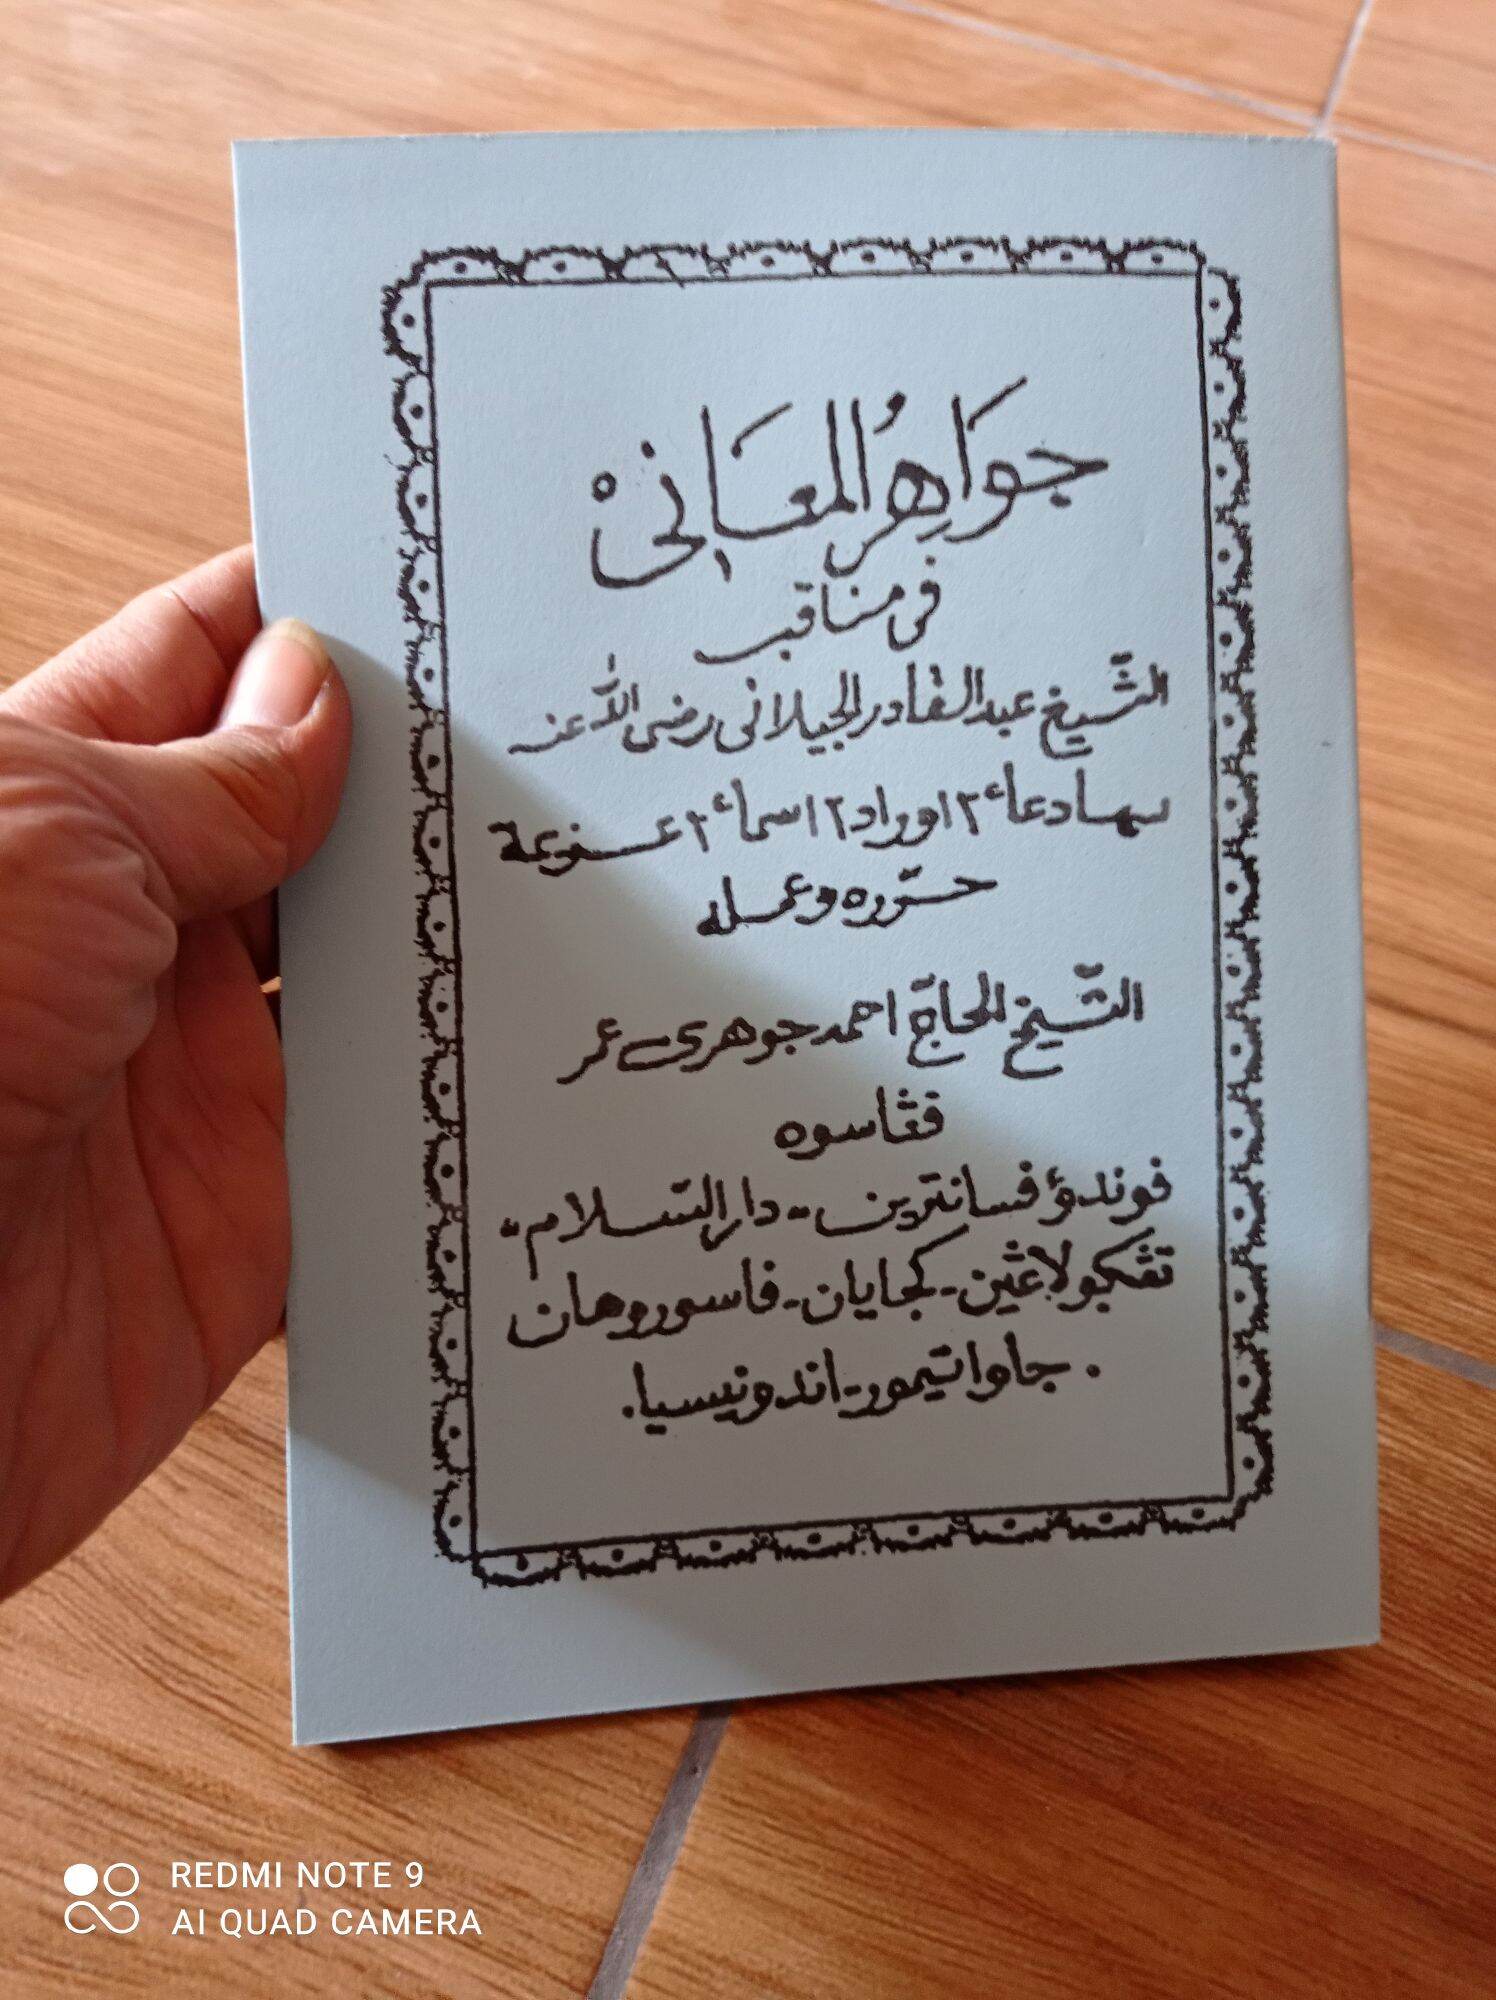 جَوَاهِرُ المَعَانِىْ
فى مناقب
الشّيخ عبد القادر الجيلانى رضى اللّٰه عنه
دعاء٢ اوراد٢ اسماء٢
حرّره وعمله
الشّيخ الحاجّ احمد جوهرى عمر
فڠاسوه
فوندؤ فسانترين - "دار السّلام"
تڠكولاڠين - كجايان - فاسوروهان
. جاوا تيمور - اندونيسيا .
REDMI NOTE 9
AI QUAD CAMERA